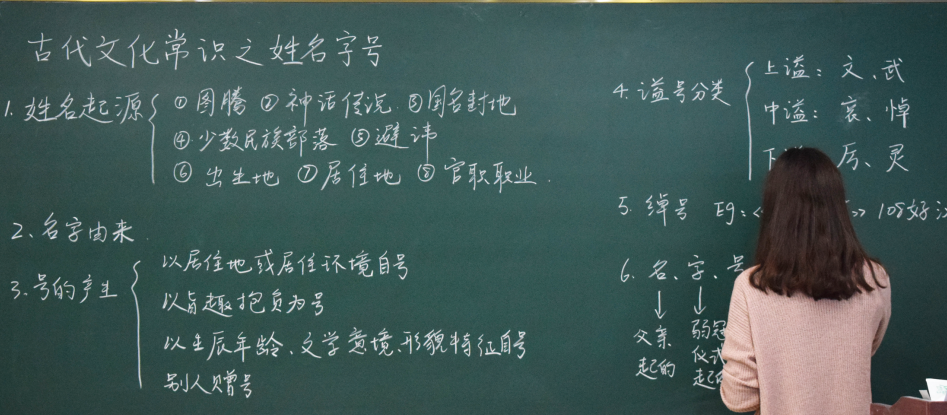 古代文化常识之姓名字号
1. 姓名起源 ①图腾 ②神话传说 ③国名封地
④少数民族部落 ⑤避讳
⑥出生地 ⑦居住地 ⑧官职职业
2、名字由来
3、号的产生
以居住地或居住环境自号
以旨趣抱负为号
以生辰年龄、文学意境、形貌特征自号
别人赠号
4. 谥号分类
上谥:文、武
中谥:哀、悼
下 厉、灵
5. 绰号 Eg:< > 108好
6. 名、字、号
父亲
起的
弱冠
仪式
起的